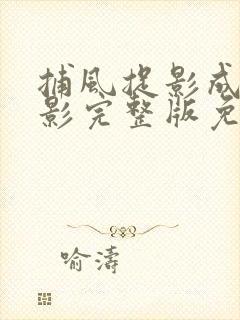 捕风捉影成
影完整版免
喻涛